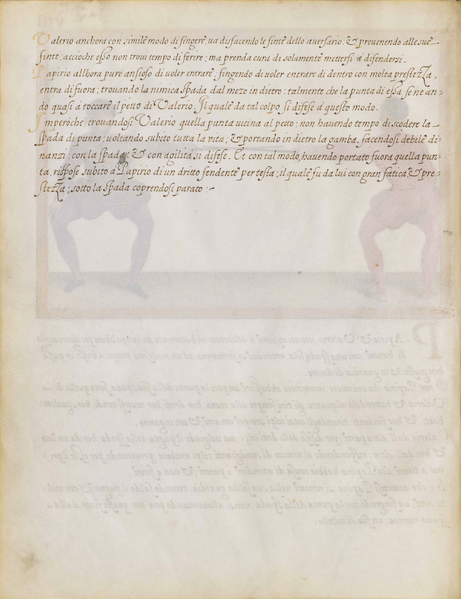 Valerio anchora con simile modo di fingere, va disfacendo le finte dello aversario, & prevenendo alle sue
finte, accioche esso non trovi tempo di ferire; ma prenda cura di solamente mettersi à difendersi.
Papirio allhora pure ansioso di voler entrare, fingendo di voler entrare di dentro con molta prestezza,
entra di fuora; trovando la nimica spada dal mezo in dietro: talmente che la punta di essa se ne an-
dò quasi à toccare il petto di Valerio. Il quale da tal colpo si difese à questo modo.
Imperoche, trovandosi Valerio quella punta vicina al petto; non havendo tempo di scodere la
spada di punta; voltando subito tutta la vita, & portando in dietro la gamba, facendosi debile di-
nanzi con la spada, & con agilità si difese. Et con tal modo, havendo portato fuora quella pun-
ta, rispose subito à Papirio di un dritto fendente per testa; il quale fu da lui con gran fatica, & pre-
stezza, sotto la spada coprendosi parato